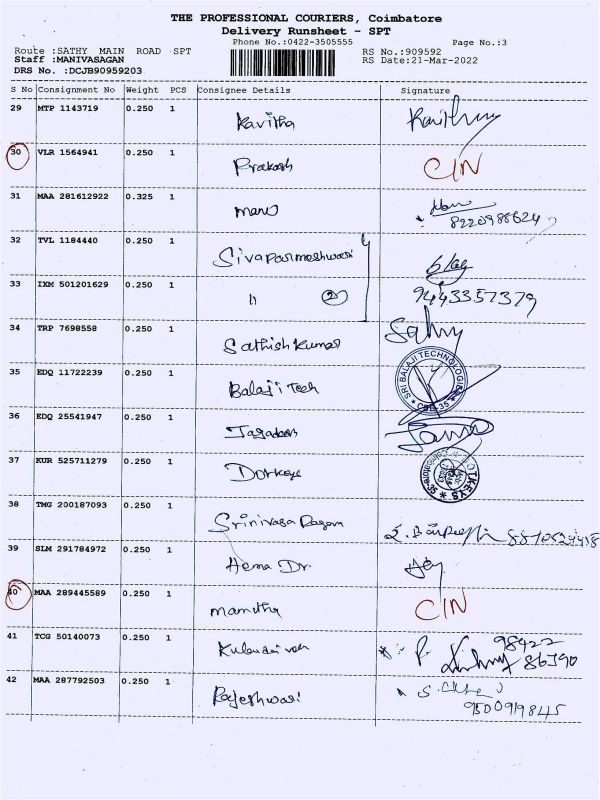 THE PROFESSIONAL COURIERS, Coimbatore
Delivery Runsheet - SPT
Phone No.:0422-3505555 Page No.:3
Route :SATHY MAIN ROAD SPT RS No.:909592
Staff :MANIVASAGAN RS Date:21-Mar-2022
DRS No. :DCJB90959203
S No Consignment No Weight PCS Consignee Details Signature
29 MTP 1143719 0.250 1 Kavitha
30 VLR 1564941 0.250 1 Prakash C/N
31 MAA 281612922 0.325 1 mano
8220988624
32 TVL 1184440 0.250 1 Sivaparmeshwari
33 IXM 501201629 0.250 1 11 2 9443357379
34 TRP 7698558 0.250 1 Sathish Kumar
35 EDQ 11722239 0.250 1 Balaji Tech SRI BALAJI TECHNOLOGIES
36 EDQ 25541947 0.250 1 Jagadesh
37 KUR 525711279 0.250 1 Dotkeys
38 TMG 200187093 0.250 1 Srinivasa Ragam
39 SLM 291784972 0.250 1 Hema Dr.
40 MAA 289445589 0.250 1 mamitha C/N
41 TCG 50140073 0.250 1 98422
86390
42 MAA 287792503 0.250 1 Rajeshwari
9500919845